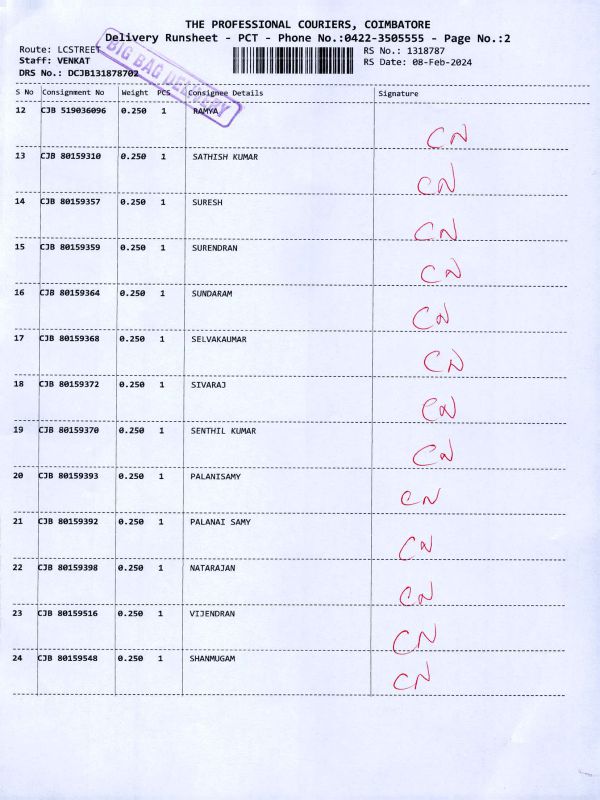 THE PROFESSIONAL COURIERS, COIMBATORE
Delivery Runsheet - PCT - Phone No.:0422-3505555 - Page No.:2
Route: LCSTREET RS No.: 1318787
Staff: VENKAT RS Date: 08-Feb-2024
DRS No.: DCJB131878702
BIG BAG DELIVERY
S No Consignment No Weight PCS Consignee Details Signature
12 CJB 519036096 0.250 1 RAMYA CN
13 CJB 80159310 0.250 1 SATHISH KUMAR CN
14 CJB 80159357 0.250 1 SURESH CN
15 CJB 80159359 0.250 1 SURENDRAN CN
16 CJB 80159364 0.250 1 SUNDARAM CN
17 CJB 80159368 0.250 1 SELVAKAUMAR CN
18 CJB 80159372 0.250 1 SIVARAJ CN
19 CJB 80159370 0.250 1 SENTHIL KUMAR CN
20 CJB 80159393 0.250 1 PALANISAMY CN
21 CJB 80159392 0.250 1 PALANAI SAMY CN
22 CJB 80159398 0.250 1 NATARAJAN CN
23 CJB 80159516 0.250 1 VIJENDRAN CN
24 CJB 80159548 0.250 1 SHANMUGAM CN